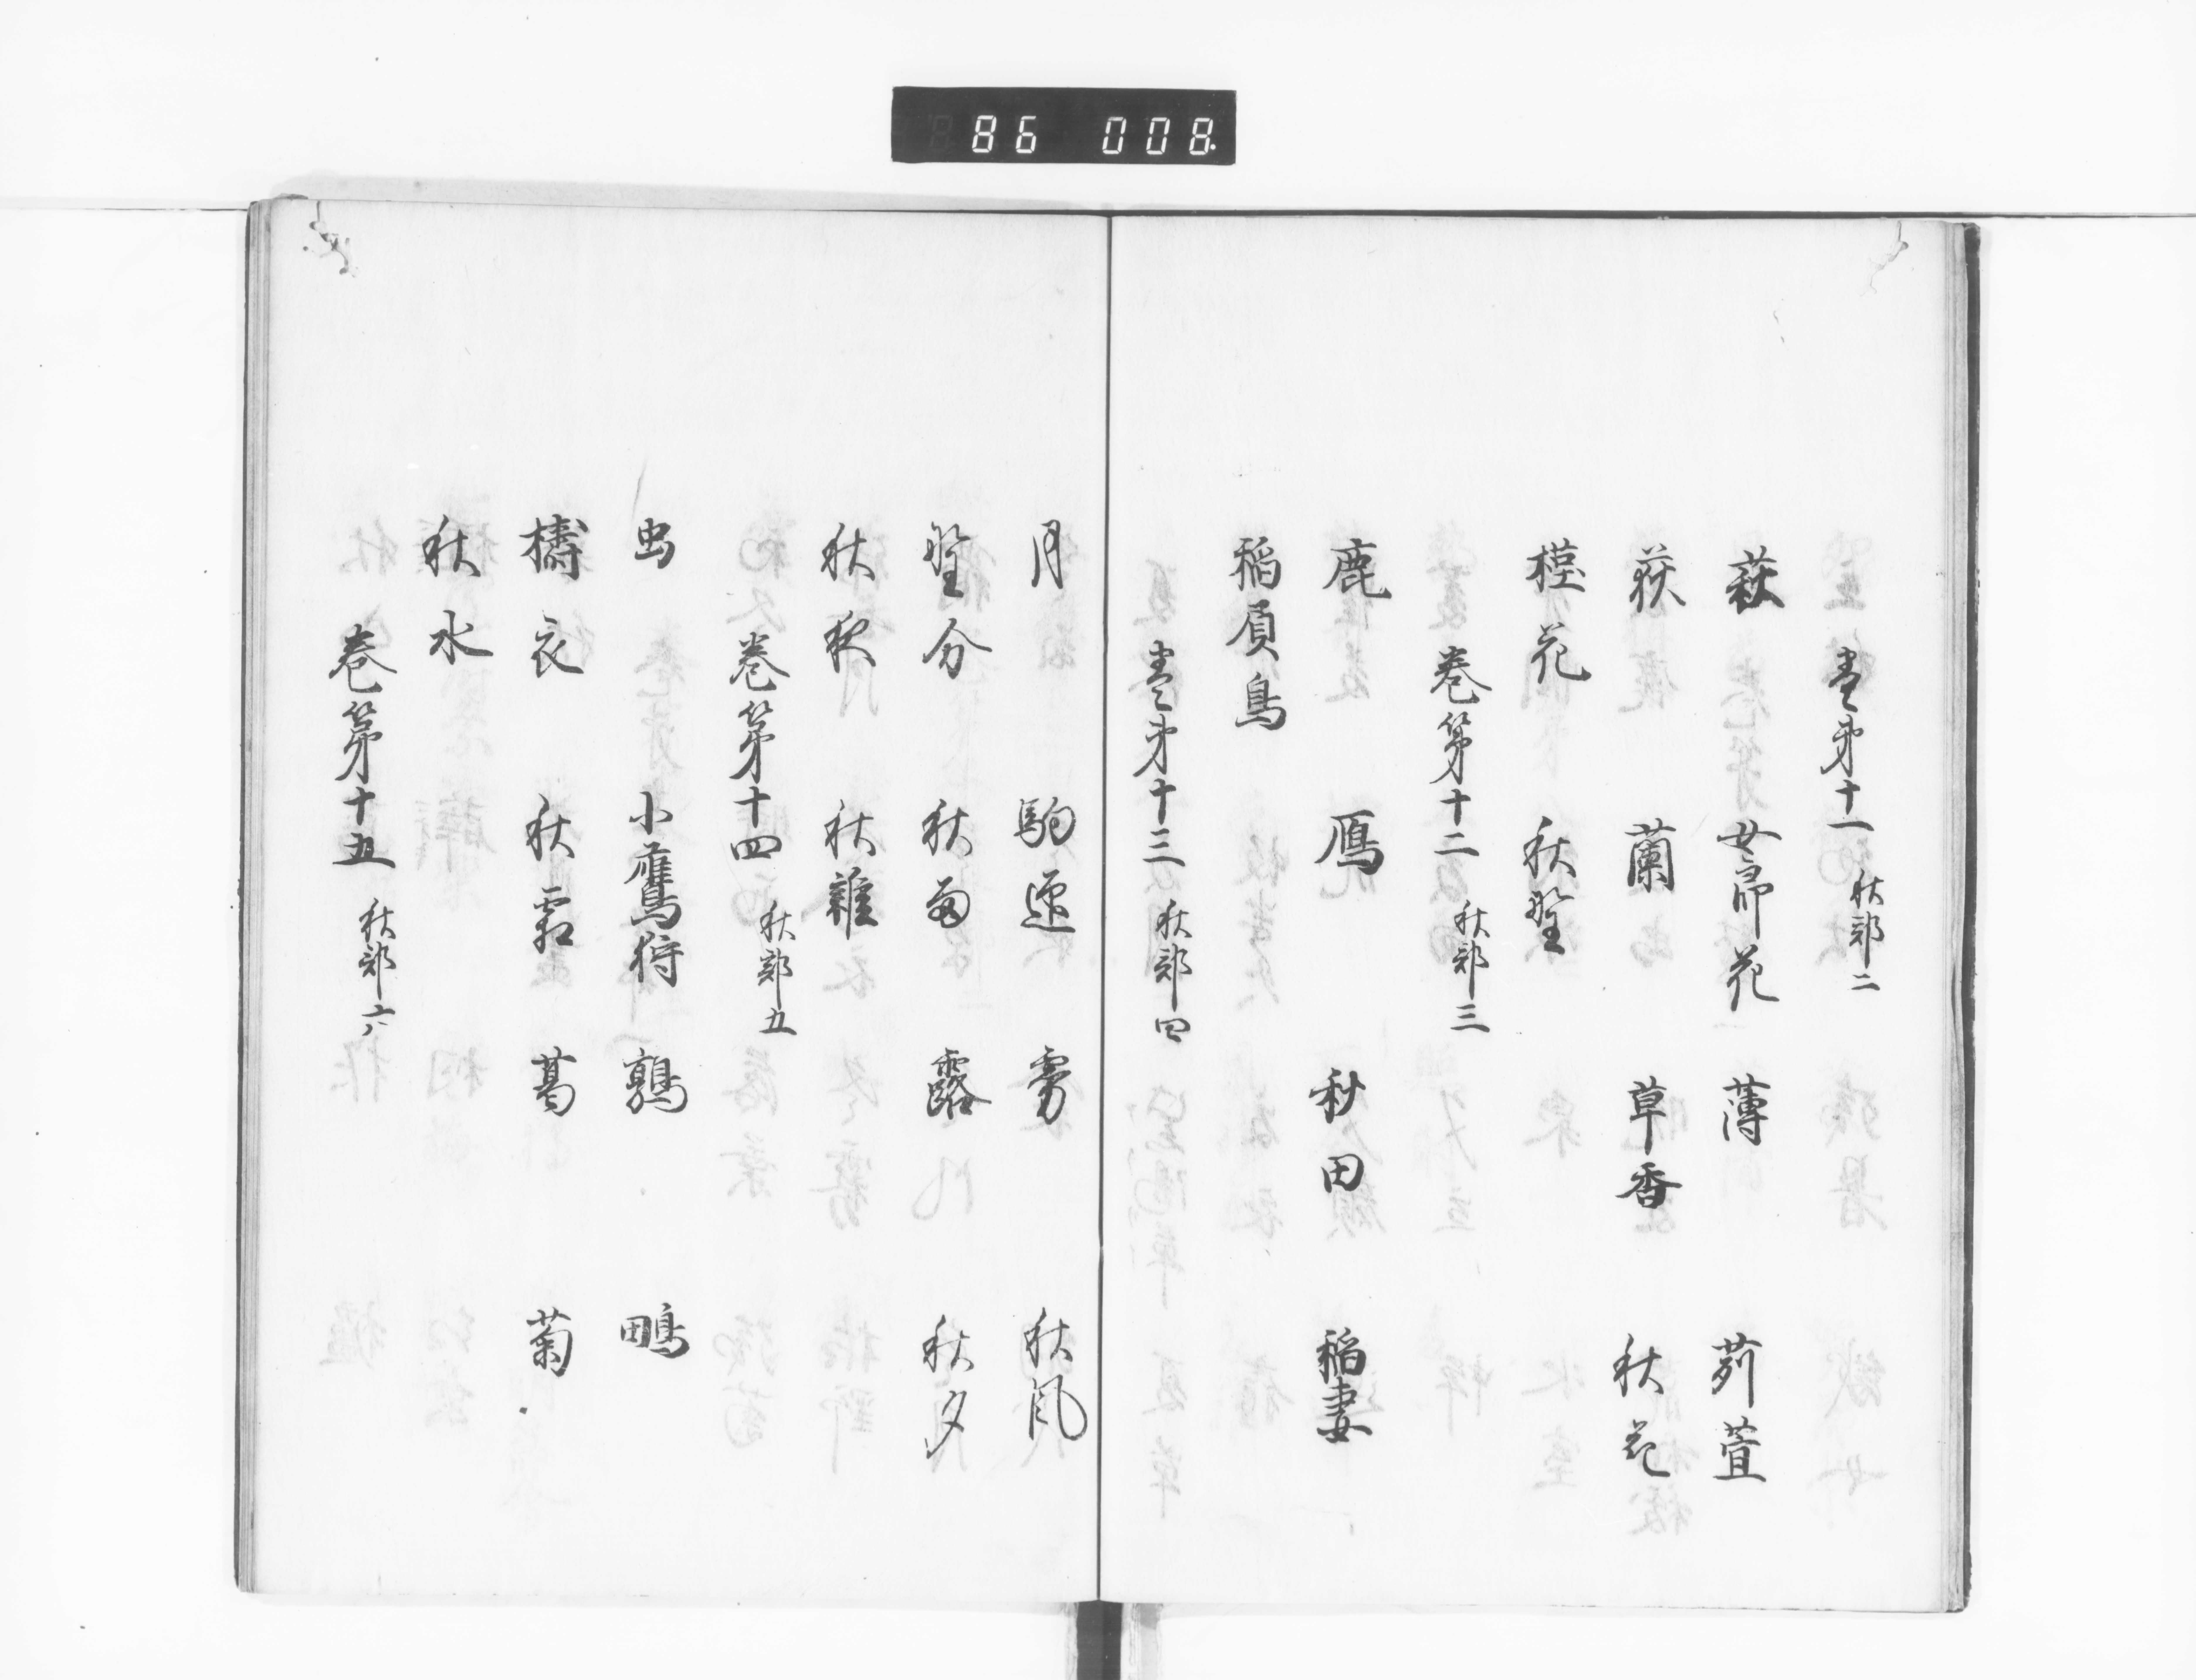 86 008.
巻第十一 秋部二
萩 女郎花 薄 苅萱
荻 蘭 草香 秋花
槿花 秋野
巻第十二 秋部三
鹿 鴈 秋田 稲妻
稲負鳥
巻第十三 秋部四
月 駒迎 霧 秋風
野分 秋雨 露 秋夕
秋夜 秋雑
巻第十四 秋部五
虫 小鷹狩 鶉 鴫
擣衣 秋霜 葛 菊
秋水
巻第十五 秋部六